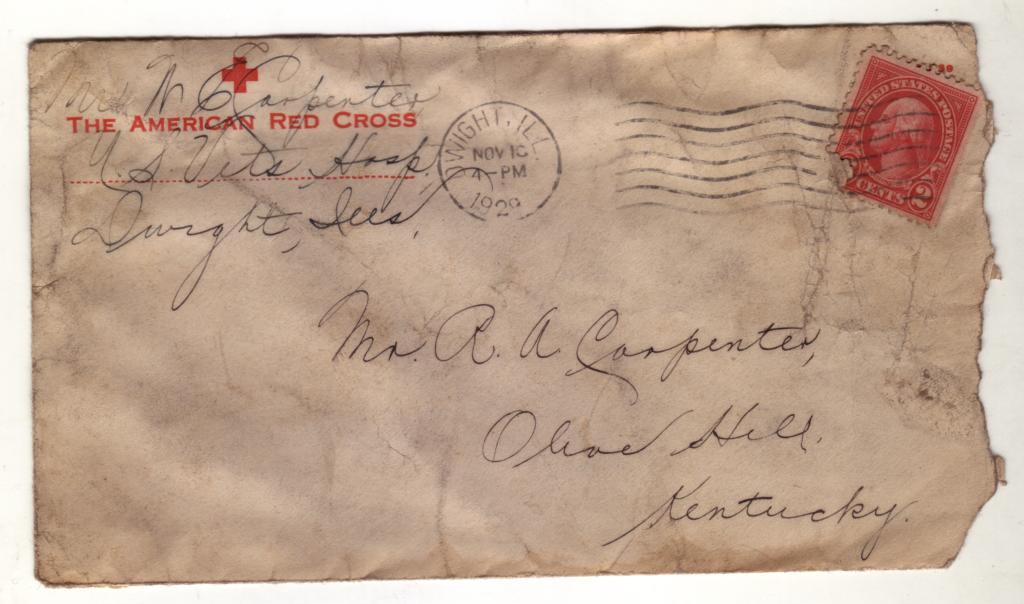 Mrs W C Carpenter
THE AMERICAN RED CROSS
U.S. Vets, Hosp,
Dwight, Ills,
DWIGHT, ILL.
NOV 1
4-PM
192
UNITED STATES POSTAGE
2 CENTS 2
Mr. R. A. Carpenter,
Olive Hill,
Kentucky.